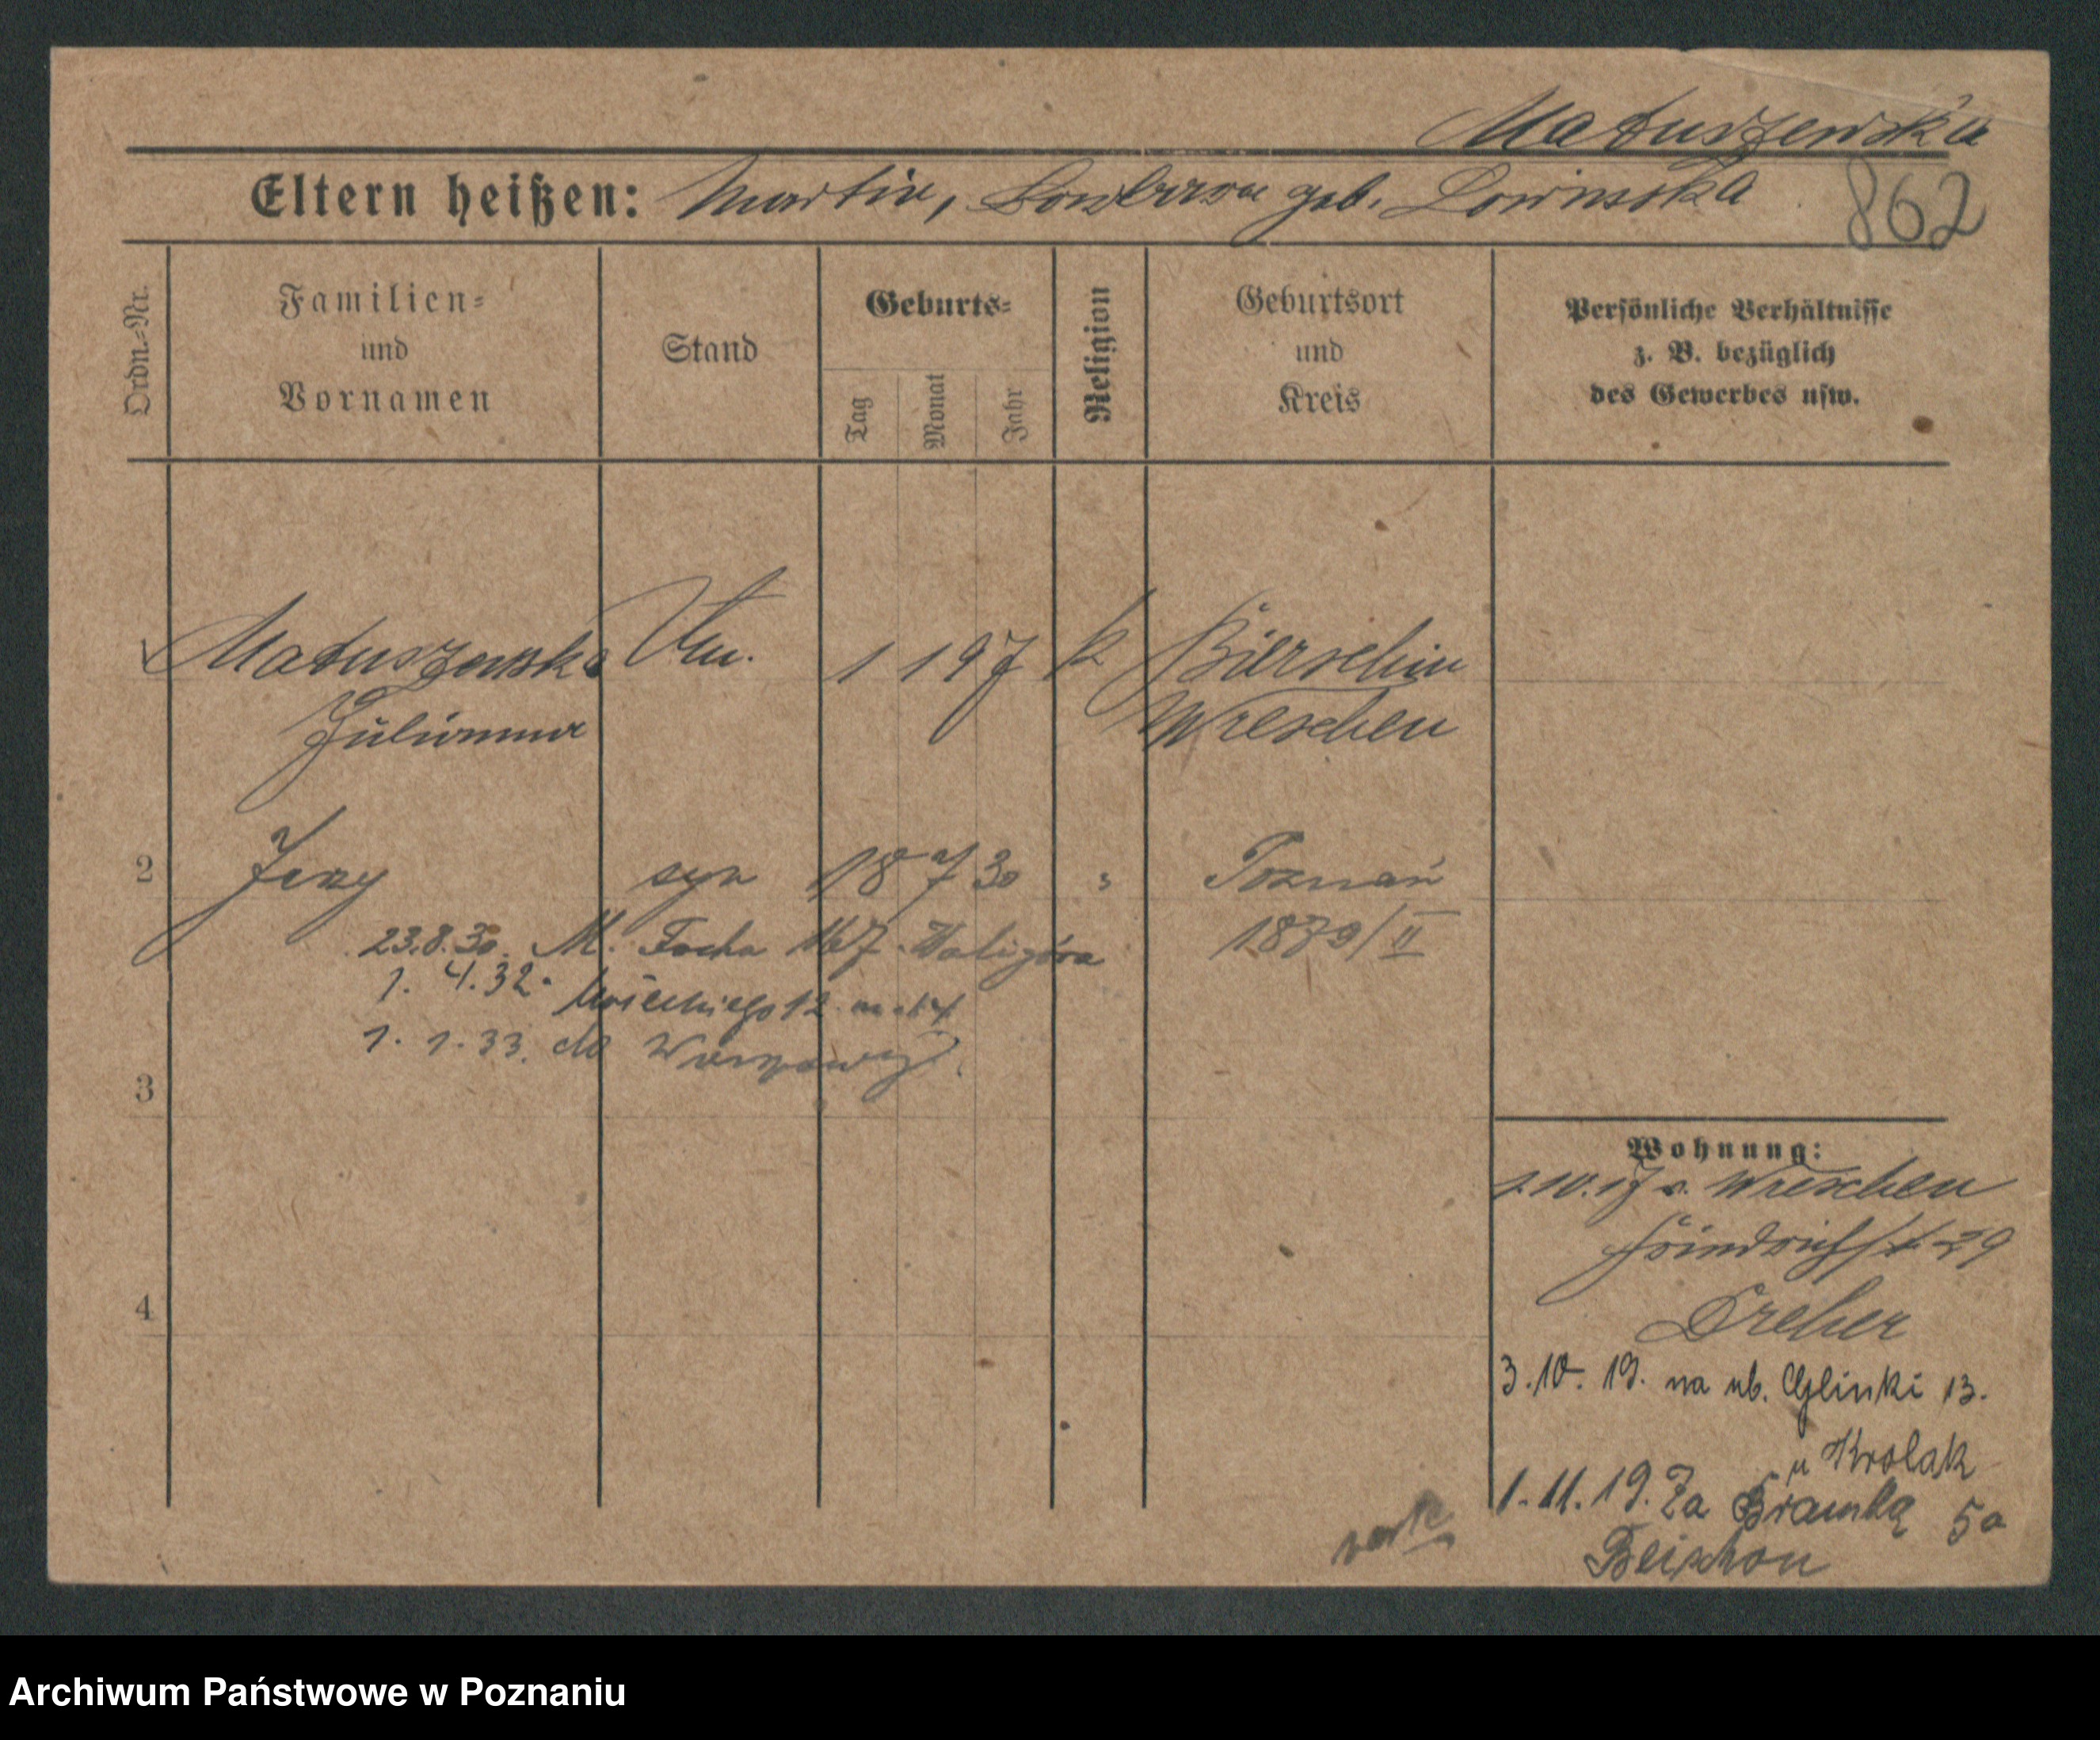 Matuszewska
Eltern heißen: Martin, Barbara geb. Lowinska
862
Ordn.-Nr.
Familien- und Vornamen
Stand
Geburts-
Tag
Monat
Jahr
Religion
Geburtsort und Kreis
Persönliche Verhältnisse
z. B. bezüglich
des Gewerbes usw.
Matuszewska 1 1 97 k
Julianna Wreschen
2 Jerzy syn 18 7 30 " Poznań
23.8.30. M. Focha 167 Waligóra 1879/II
1. 4. 32. 12 m. 14
1. 1. 33. do Warszawy.
3
4
Wohnung:
1.10.17 v. Wreschen
29
Dreher
3.10.19. na ul. Glinki 13.
u Krolak
1.11.19. Za Bramką 5a